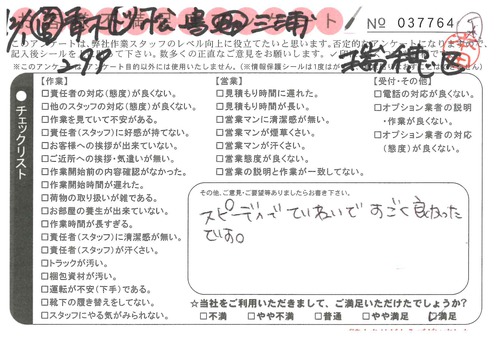 No 037764
三浦
このアンケートは、弊社作業スタッフのレベル向上に役立てたいと思います。否定的なアンケートになりますので、
299
チェックリスト
【作業】
□責任者の対応(態度)が良くない。
□他のスタッフの対応(態度)が良くない。
□作業を見ていて不安がある。
□責任者(スタッフ)に好感が持てない。
□お客様への挨拶が出来ていない。
□ご近所への挨拶・気遣いが無い。
□作業開始前の内容確認がなかった。
□作業開始時間が遅れた。
□荷物の取り扱いが雑である。
□お部屋の養生が出来ていない。
□作業時間が長すぎる。
□責任者(スタッフ)に清潔感が無い。
□責任者(スタッフ)が汗くさい。
□トラックが汚い。
□梱包資材が汚い。
□運転が不安(下手)である。
□靴下の履き替えをしてない。
□スタッフにやる気がみられない。
【営業】
□見積もり時間に遅れた。
□見積もり時間が長い。
□営業マンに清潔感が無い。
□営業マンが煙草くさい。
□営業マンが汗くさい。
□営業態度が良くない。
□営業の説明と作業が一致してない。
【受付・その他】
□電話の対応が良くない。
□オプション業者の説明
・作業が良くない。
□オプション業者の対応
(態度)が良くない。
その他、ご意見・ご要望等ありましたらお書き下さい。
スピーディでていねいですごく良かった
です。
☆当社をご利用いただきまして、ご満足いただけたでしょうか?
□不満 □やや不満 □普通 □やや満足 ☑満足